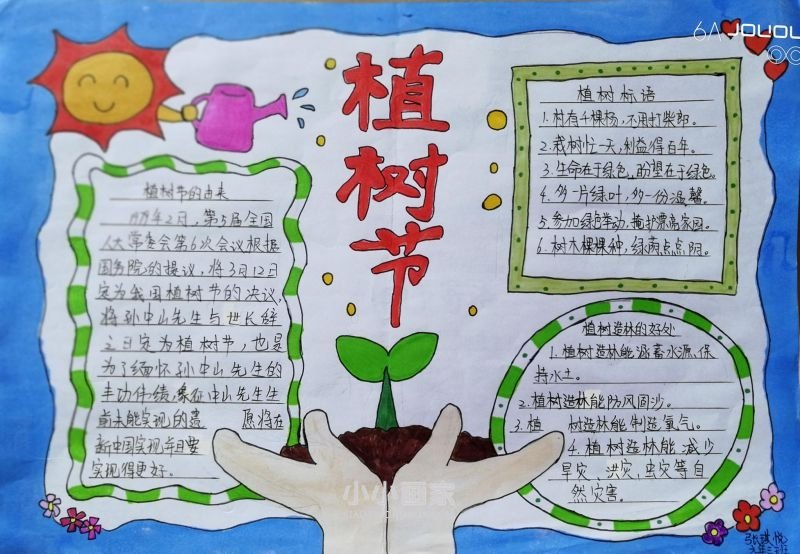 植树节
植树节的由来
1979年2月，第5届全国
人大常委会第6次会议根据
国务院的提议，将3月12日
定为我国植树节的决议，
将孙中山先生与世长辞
之日定为植树节，也是
为了缅怀孙中山先生的
丰功伟绩，象征中山先生生
前未能实现的遗 愿将在
新中国实现并且要
实现得更好。
植树标语
1.村有千棵杨，不用打柴郎。
2.栽树忙一天，利益得百年。
3.生命在于绿色，盼望在于绿色。
4.多一片绿叶，多一份温馨。
5.参加绿色举动，掩护家园。
6.树木棵棵种，绿雨点点阴。
植树造林的好处
1.植树造林能涵蓄水源、保
持水土。
2.植树造林能防风固沙。
3.植 树造林能制造氧气。
4.植树造林能减少
旱灾、洪灾、虫灾等自
然灾害。
小小画家
张琪悦